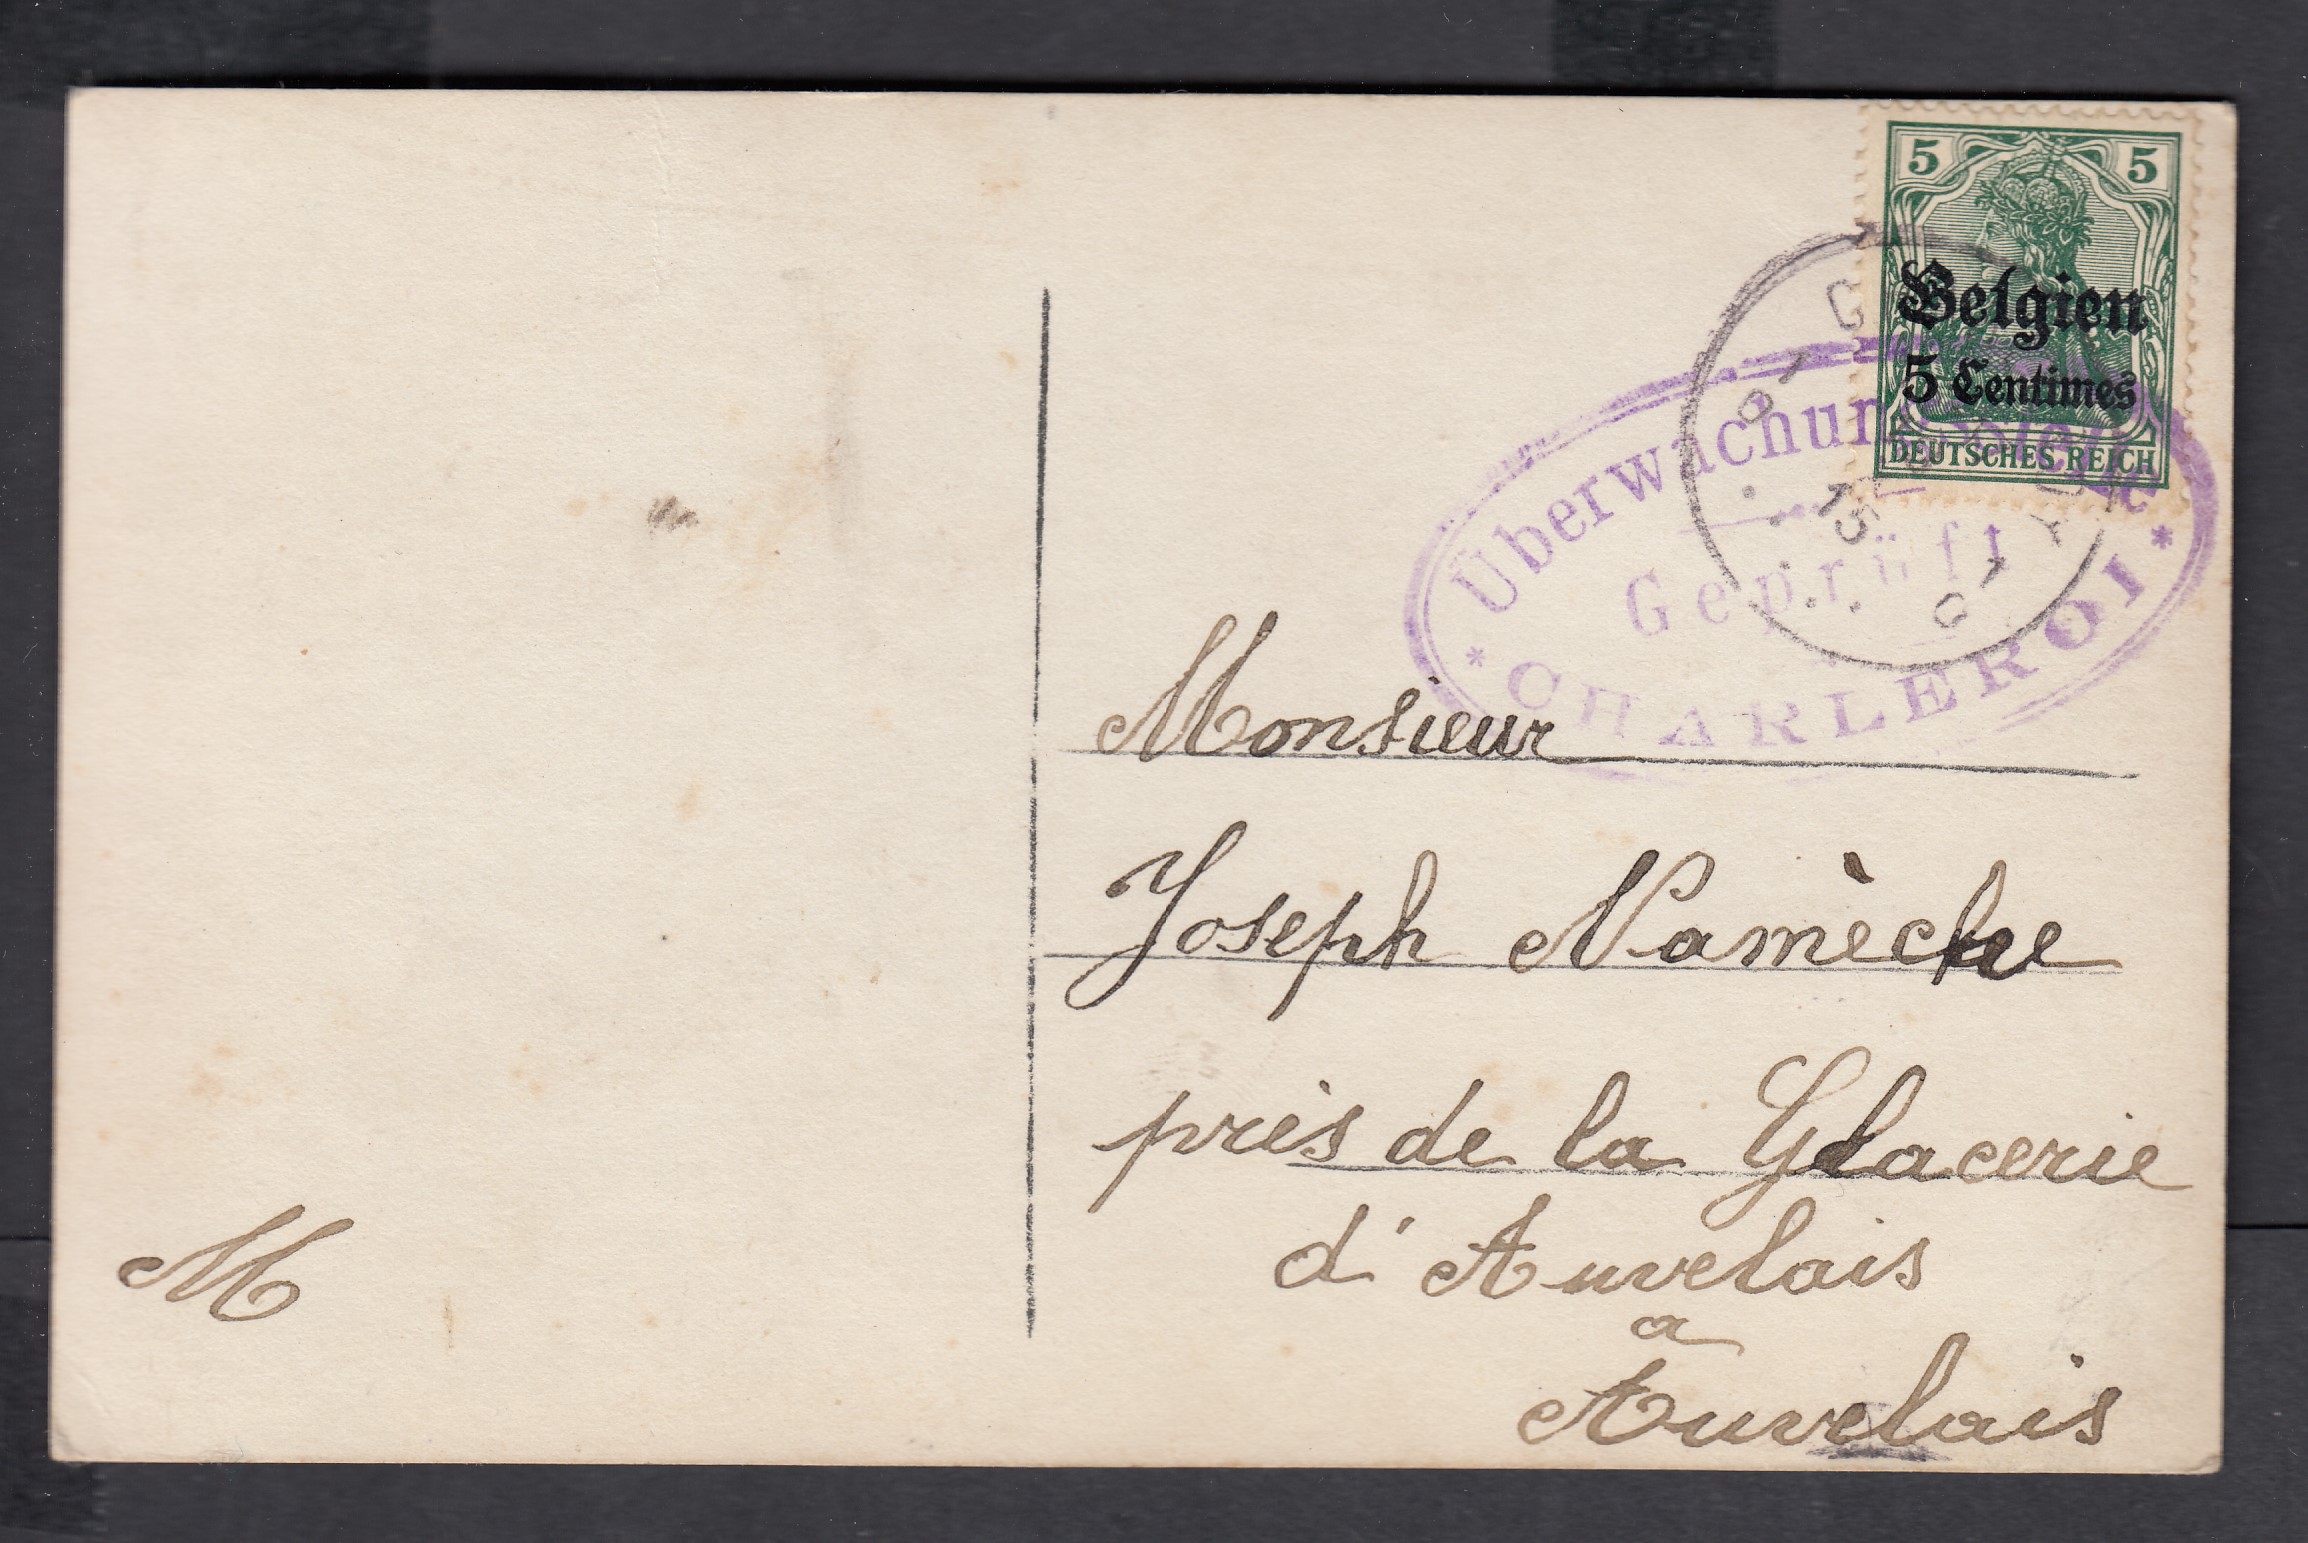 5 5
Belgien
5 Centimes
DEUTSCHES REICH
Überwachungsstelle
15
Geprüft
* CHARLEROI *
Monsieur
Joseph Namèche
près de la Glacerie
d'Auvelais
a
Auvelais
M